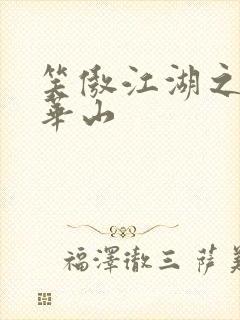 笑傲江湖之
華山
福澤徹三 薩